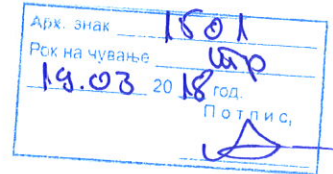 Арх. знак 1501
Рок на чување тр
19.03 2018 год.
Потпис,